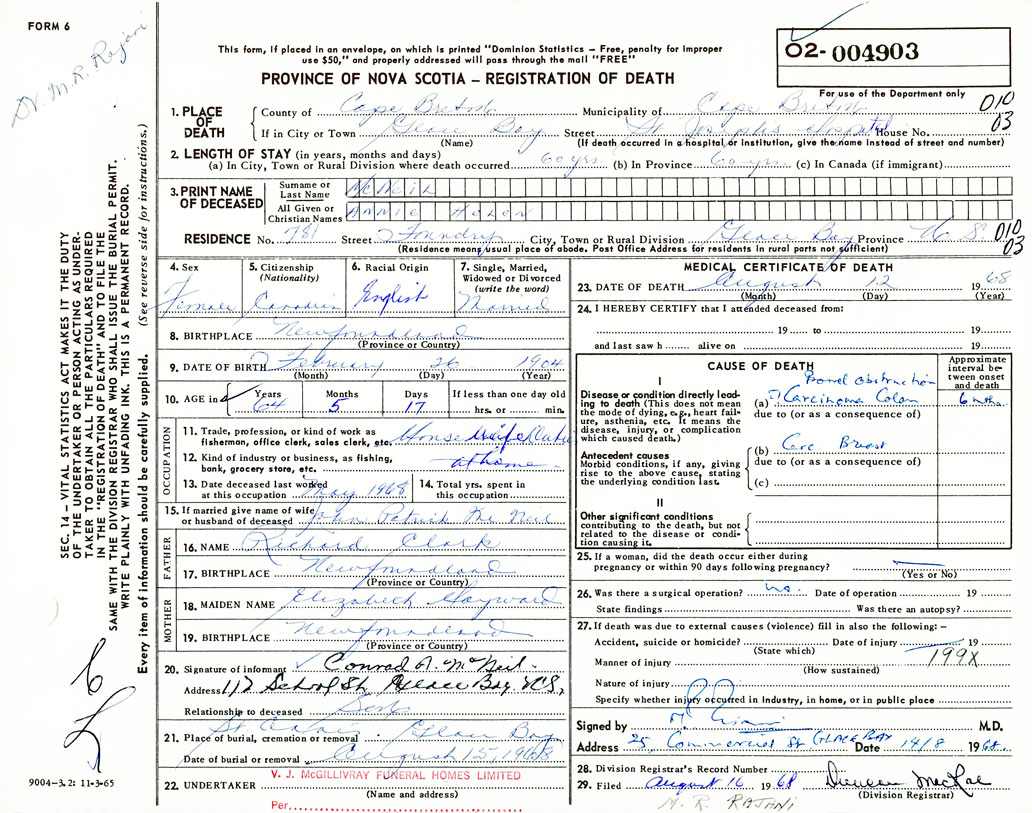 FORM 6
Dr. M. R. Rajani
This form, if placed in an envelope, on which is printed "Dominion Statistics – Free, penalty for improper
use $50," and properly addressed will pass through the mail "FREE"
PROVINCE OF NOVA SCOTIA – REGISTRATION OF DEATH
02- 004903
For use of the Department only
010
03
1. PLACE OF DEATH
County of Cape Breton Municipality of Cape Breton
If in City or Town Glace Bay Street St Joseph's Hospital House No.
(Name) (If death occurred in a hospital or institution, give the name instead of street and number)
2. LENGTH OF STAY (in years, months and days)
(a) In City, Town or Rural Division where death occurred 60 yrs (b) In Province 60 yrs (c) In Canada (if immigrant)
3. PRINT NAME OF DECEASED
Surname or Last Name McNeil
All Given or Christian Names Annie Helen
RESIDENCE No. 781 Street Foundry City, Town or Rural Division Glace Bay Province N S
010
03
(Residence means usual place of abode. Post Office Address for residents in rural parts not sufficient)
4. Sex
Female
5. Citizenship
(Nationality)
Canadian
6. Racial Origin
English
7. Single, Married,
Widowed or Divorced
(write the word)
Married
8. BIRTHPLACE Newfoundland
(Province or Country)
9. DATE OF BIRTH February 26 1904
(Month) (Day) (Year)
10. AGE in Years Months Days If less than one day old
64 5 17 hrs. or min.
OCCUPATION
11. Trade, profession, or kind of work as
fisherman, office clerk, sales clerk, etc. Housewife
12. Kind of industry or business, as fishing,
bank, grocery store, etc. at home
13. Date deceased last worked
at this occupation May 1968
14. Total yrs. spent in
this occupation
15. If married give name of wife
or husband of deceased John Patrick Mc Neil
FATHER
16. NAME Richard Clark
17. BIRTHPLACE Newfoundland
(Province or Country)
MOTHER
18. MAIDEN NAME Elizabeth Hayward
19. BIRTHPLACE Newfoundland
(Province or Country)
20. Signature of informant Conrad A. McNeil
Address 112 School St, Glace Bay, N.S.
Relationship to deceased Son
21. Place of burial, cremation or removal St Glace Bay
Date of burial or removal August 15, 1968
22. UNDERTAKER V. J. McGILLIVRAY FUNERAL HOMES LIMITED
(Name and address)
Per
MEDICAL CERTIFICATE OF DEATH
23. DATE OF DEATH August 12 1968
(Month) (Day) (Year)
24. I HEREBY CERTIFY that I attended deceased from:
19 to 19
and last saw h alive on 19
CAUSE OF DEATH
Approximate
interval be-
tween onset
and death
I
Bowel obstruction
Disease or condition directly lead-
ing to death (This does not mean
the mode of dying, e.g., heart fail-
ure, asthenia, etc. It means the
disease, injury, or complication
which caused death.)
(a) ? Carcinoma Colon 6 mths.
due to (or as a consequence of)
Antecedent causes
Morbid conditions, if any, giving
rise to the above cause, stating
the underlying condition last.
(b) Breast
due to (or as a consequence of)
(c)
II
Other significant conditions
contributing to the death, but not
related to the disease or condi-
tion causing it.
25. If a woman, did the death occur either during
pregnancy or within 90 days following pregnancy?
(Yes or No)
26. Was there a surgical operation? no. Date of operation 19
State findings Was there an autopsy?
27. If death was due to external causes (violence) fill in also the following: –
Accident, suicide or homicide? Date of injury 19
(State which)
199X
Manner of injury
(How sustained)
Nature of injury
Specify whether injury occurred in industry, in home, or in public place
Signed by M.D.
Address 25, Commercial St GLACE BAY Date 14/8 1968
28. Division Registrar's Record Number
29. Filed August 16 1968 Duncan MacRae
(Division Registrar)
M. R. RAJANI
SEC. 14 – VITAL STATISTICS ACT MAKES IT THE DUTY
OF THE UNDERTAKER OR PERSON ACTING AS UNDER-
TAKER TO OBTAIN ALL THE PARTICULARS REQUIRED
IN THE "REGISTRATION OF DEATH" AND TO FILE THE
SAME WITH THE DIVISION REGISTRAR WHO SHALL ISSUE THE BURIAL PERMIT.
WRITE PLAINLY WITH UNFADING INK. THIS IS A PERMANENT RECORD.
Every item of information should be carefully supplied. (See reverse side for instructions.)
9004–3.2: 11-3-65